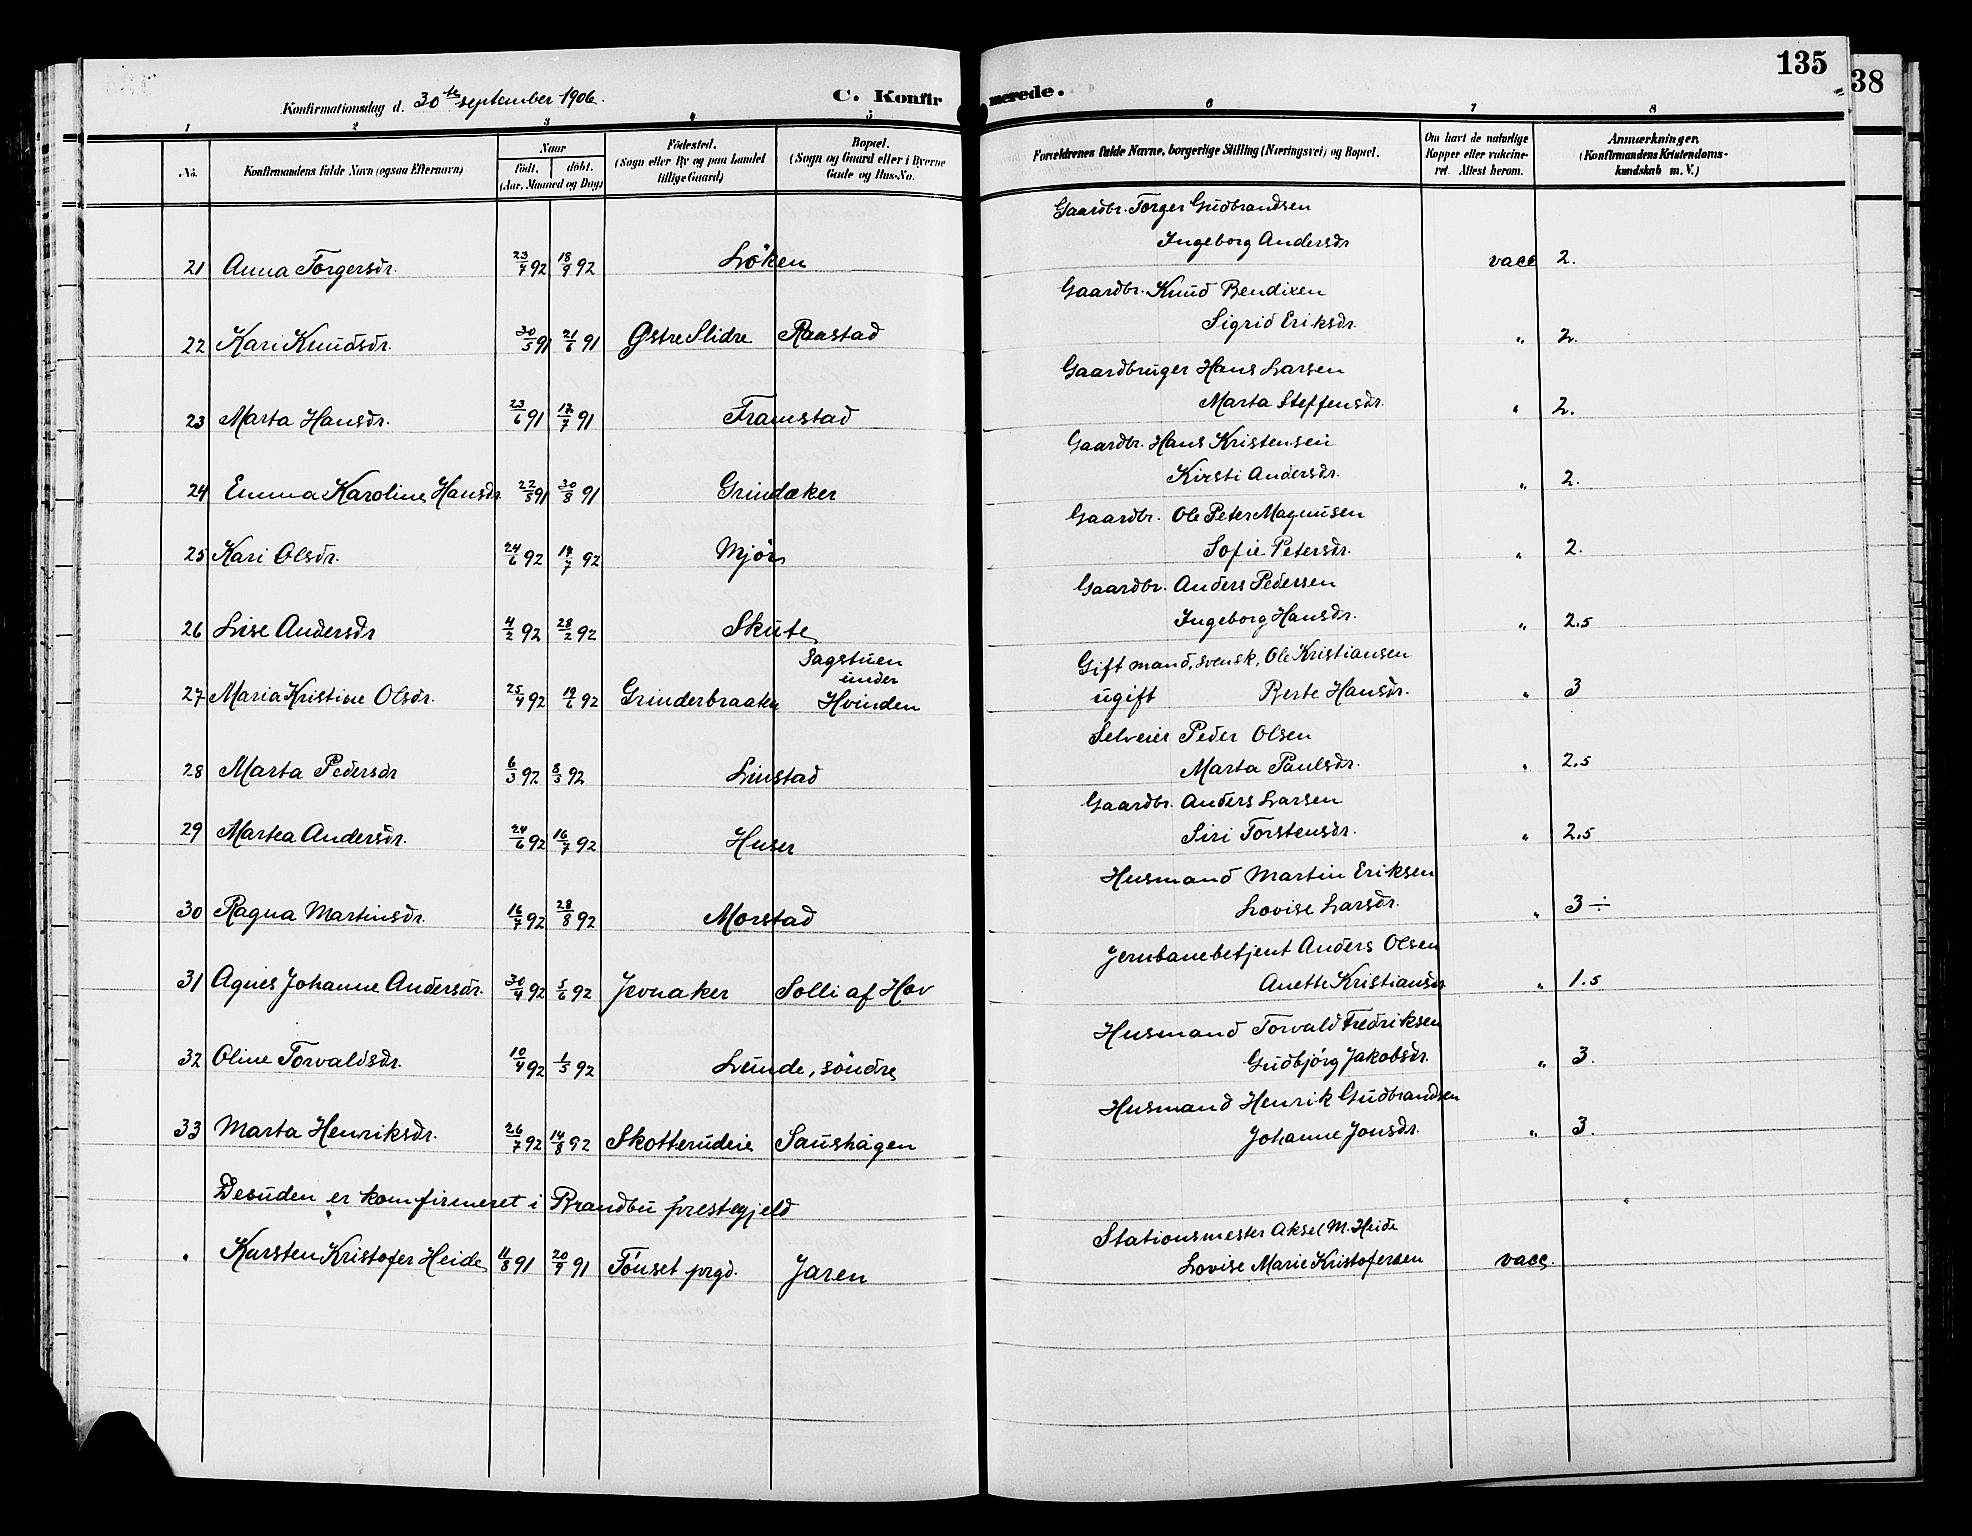 135
38
Konfirmationsdag d. 30te september 1906.
C. Konfirmerede.
1 2 3 4 5 6 7 8
No. Konfirmandens fulde Navn (ogsaa Efternavn)
Naar født. døbt. (Aar, Maaned og Dag)
Fødested. (Sogn eller By og paa Landet tillige Gaard)
Bopæl. (Sogn og Gaard eller i Byerne Gade og Hus-No.
Forældrenes fulde Navne, borgerlige Stilling (Næringsvei) og Bopæl.
Om havt de naturlige Kopper eller vakcineret. Attest herom.
Anmærkninger, (Konfirmandens Kristendomskundskab m. V.)
Gaardbr. Torger Gudbrandsen
21 Anna Torgersdr. 23/7 92 18/9 92 Löken Ingeborg Andersdr vacc 2.
Gaardbr. Knud Bendixen
22 Kari Knudsdr. 30/5 91 21/6 91 Østre Slidre Raastad Sigrid Eriksdr. " 2.
Gaardbruger Hans Larsen
23 Marta Hansdr. 23/6 91 12/7 91 Framstad Marta Steffensdr. " 2.
Gaardbr. Hans Kristensen
24 Emma Karoline Hansdr 22/5 91 30/8 91 Grindaker Kirsti Andersdr. " 2.
Gaardbr. Ole Peter Magnusen
25 Kari Olsdr. 24/6 92 17/7 92 Mjör Sofie Petersdr. " 2.
Gaardbr. Anders Pedersen
26 Lise Andersdr 4/2 92 28/2 92 Skute Ingeborg Hansdr. " 2.5
Sagstuen under
Gift mand, svensk, Ole Kristiansen
27 Maria Kristine Olsdr. 25/4 92 19/6 92 Grinderbraaten Hvinden ugift Berte Hansdr. " 3
Selveier Peder Olsen
28 Marta Pedersdr 6/3 92 8/3 92 Linstad Marta Paulsdr. " 2.5
Gaardbr. Anders Larsen
29 Martea Andersdr. 24/6 92 16/7 92 Huser Siri Torstensdr. " 2.5
Husmand Martin Eriksen
30 Ragna Martinsdr. 16/7 92 28/8 92 Morstad Lovise Larsdr. " 3 ÷
Jernbanebetjent Anders Olsen
31 Agnes Johanne Andersdr. 30/4 92 5/6 92 Jevnaker Solli af Hov Anette Kristiansdr " 1.5
Husmand Torvald Fredriksen
32 Oline Torvaldsdr. 10/4 92 1/5 92 Lunde, söndre Gudbjörg Jakobsdr. " 3.
Husmand Henrik Gudbrandsen
33 Marta Henriksdr. 26/7 92 14/8 92 Skotterudeie Saushagen Johanne Jonsdr. " 3.
Desuden er komfirmeret i Brandbu prestegjeld "
Stationsmester Aksel M. Heide
" Karsten Kristofer Heide 11/8 91 20/9 91 Tönset prgd. Jaren Lovise Marie Kristofersen vacc.